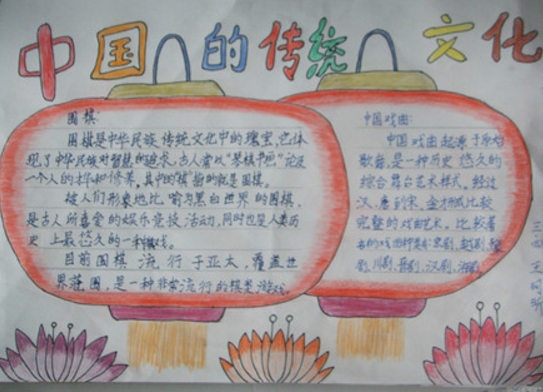 中国的传统文化
围棋:
围棋是中华民族传统文化中的瑰宝,它体
现了中华民族对智慧的追求,古人常以“琴棋书画”论及
一个人的才华和修养,其中的“棋”指的就是围棋。
被人们形象地比喻为黑白世界的围棋,
是古人所喜爱的娱乐竞技活动,同时也是人类历
史上最悠久的一种棋戏。
目前围棋流行于亚太,覆盖世
界范围,是一种非常流行的棋类游戏
中国戏曲:
中国戏曲起源于原始
歌舞,是一种历史悠久的
综合舞台艺术样式。经过
汉、唐到宋、金才形成比较
完整的戏曲艺术。比较著
名的戏曲种类有:京剧、越剧、
剧、川剧、晋剧、汉剧、
三 王